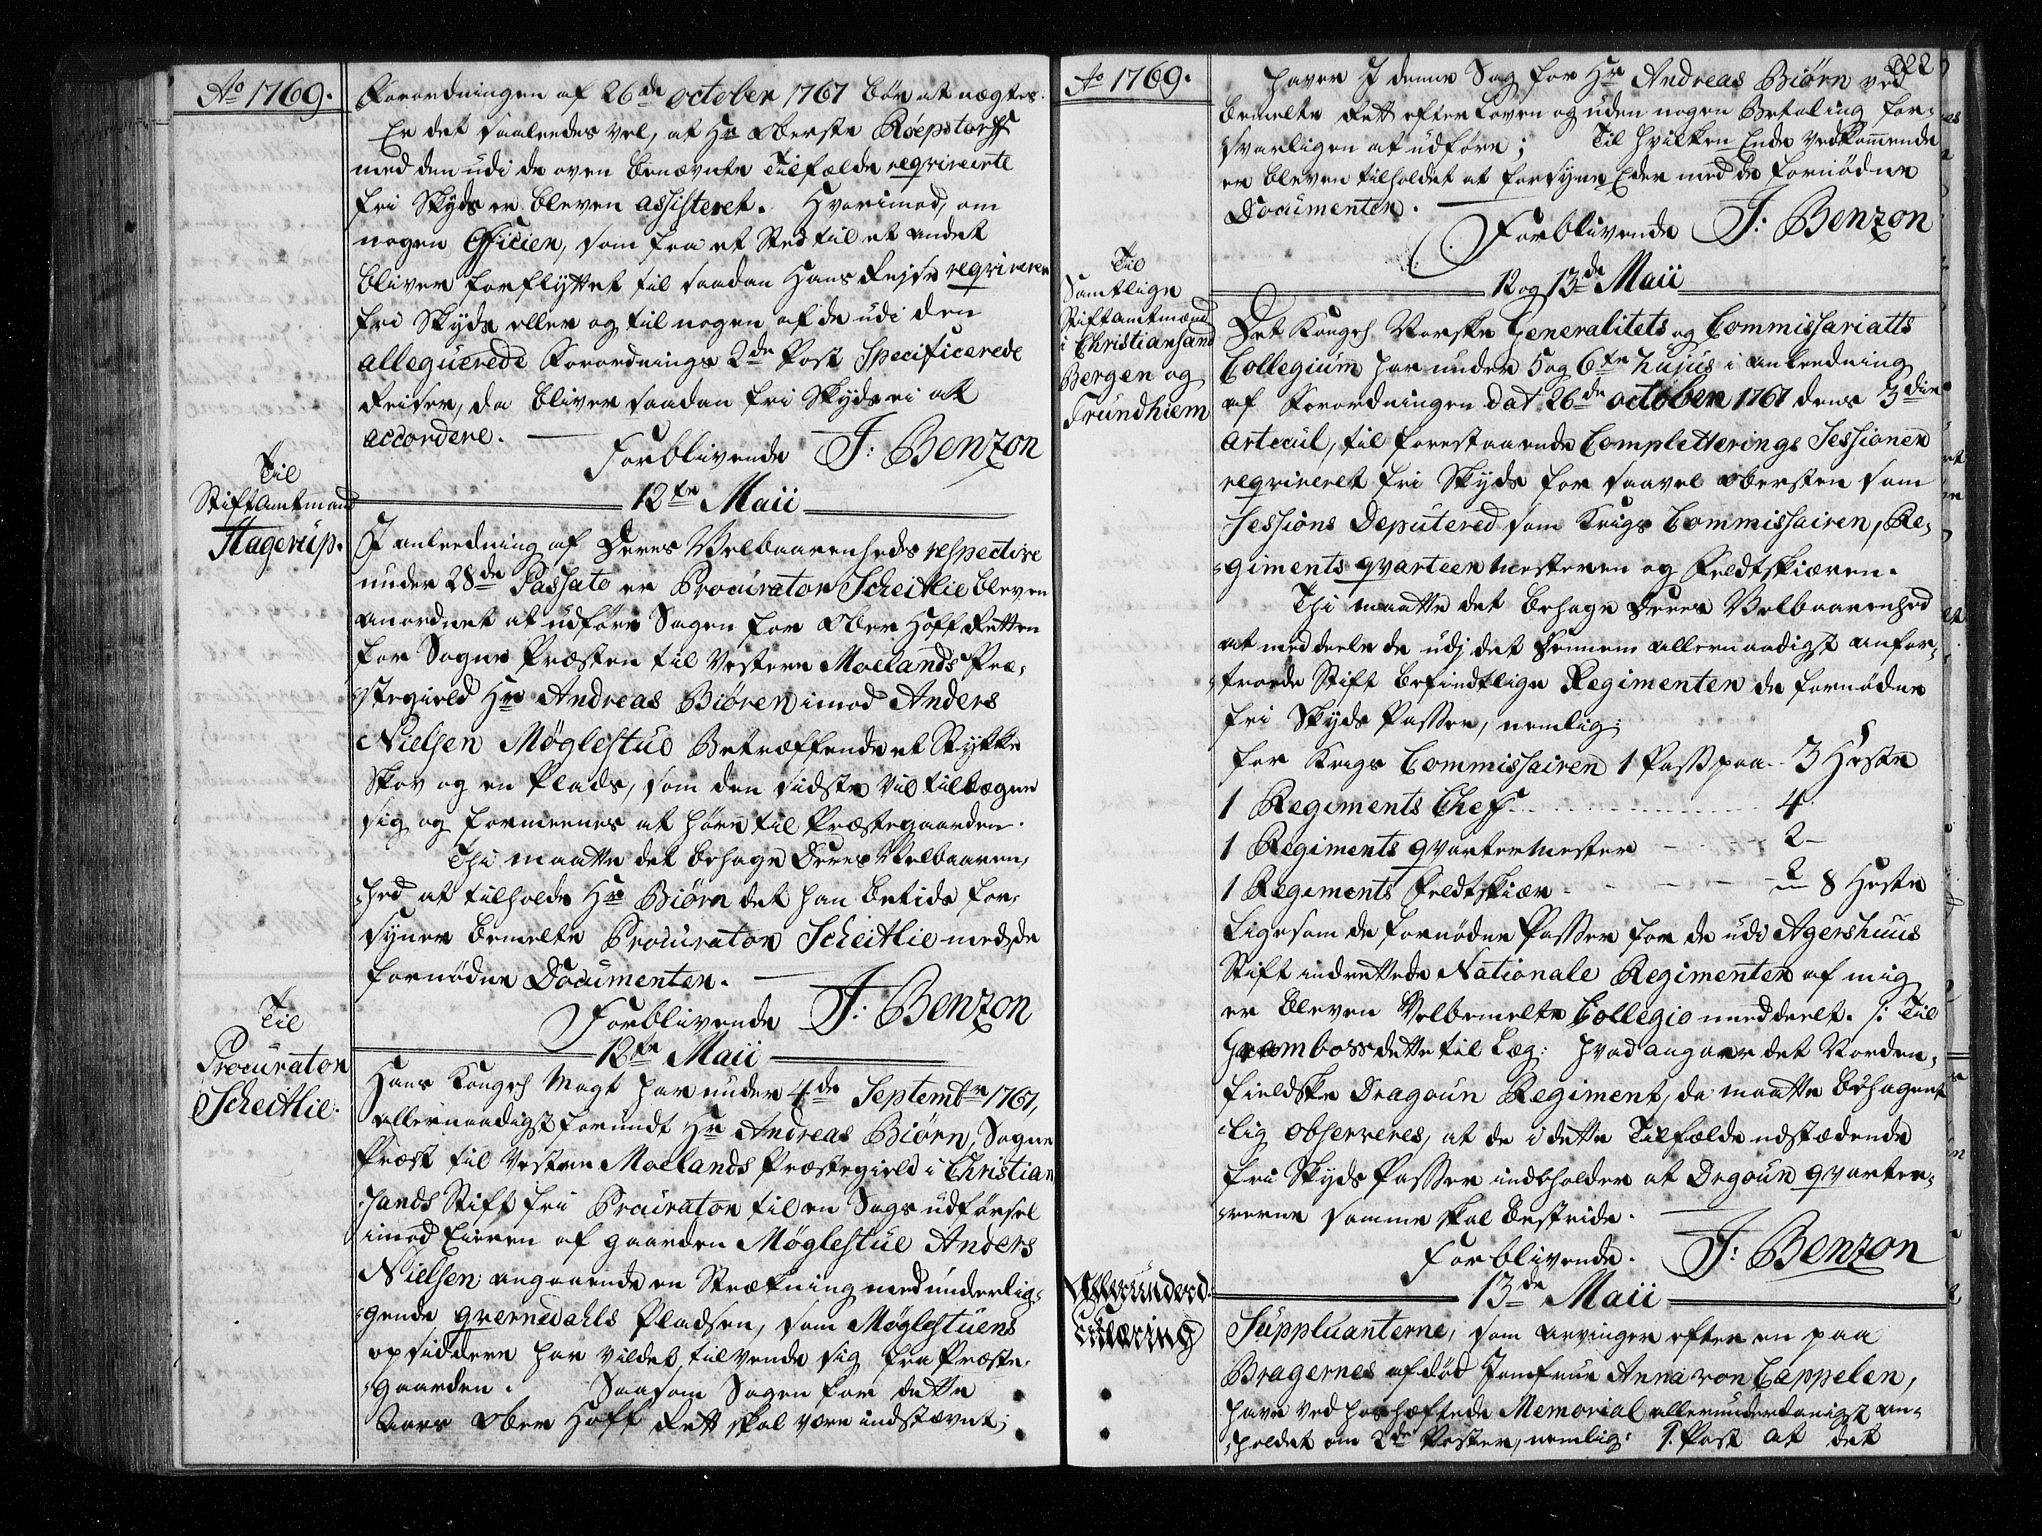 Ao 1769.
Forordningen af 26de october 1767 bør at nægtes.
Er det saaleedes vel, at Hr Oberste Röepstorff
med den udi de oven benævnte Tilfælde reqvireerte
frie Skyds er bleven assisteret. Hvorimod, om
nogen Officier, som fra et Sted til et andet
bliver forflyttet til saadan Hans Rejse reqvirerer
frie Skyds eller og til nogen af de udi den
alleguerede Forordnings 2de Post Specificerede
Reiser, da bliver saadan frie Skyds ei at
accordere.
Forblivende J: Benzon
12te Maii
Til
Stiftamtmand
Hagerup.
I anleedning af Deres Velbaarenheds respective
under 28de Passato er Procurator Scheitlie bleven
anordnet at udføre Sagen for Ober Hoff Retten
for Sogne Præsten til Vestere Moelands Præ-
stegield Hr Andreas Biøren imod Anders
Nielsen Møglestue Betræffende et Stykke
Skov og en Plads, som den sidste vil tilegne
sig og formeenes at høre til Præstegaarden.
Thi maatte det behage Deres Velbaaren-
hed at tilholde Hr Biørn det han betids for-
syner bemelte Procurator Scheitlie med de
fornødne Documenter.
Forblivende J: Benzon
12te Maii
Til
Procurator
Scheitlie.
Hans Kongel Mayt har under 4de Septembr 1767,
allernaadigst forundt Hr Andreas Biørn, Sogne
Præst til Vestere Moelands Præstegield i Christian
sands Stift frie Procurator til en Sags udførsel
imod Eieren af gaarden Møglestue Anders
Nielsen angaaende en Strækning med underlig-
gende qvernedahls Pladsen, som Møglestuens
opsiddere har vildet tilvende sig fra Præste-
gaarden. Saasom Sagen for dette
Aars Ober Hoff Rett skal være indstævnt;
Ao 1769.
222
haver I denne Sag for Hr Andreas Biørn ved
bemelte Rett efter Loven og uden nogen Betaling for-
svarligen at udføre; Til hvilken Ende vedkommende
er bleven tilholdet at forsyne Eder med de fornødne
Documenter.
Forblivende J: Benzon
12 og 13de Maii
Til
Samtlige
Stiftamtmænd
i Christiansand
Bergen og
Trundhiem
Det Kongel Norske Generalitets og Commissariatts
Collegium har under 5 og 6te hujus i anleedning
af Forordningen dat 26de october 1767 dens 3die
Articul, til forestaaende Completterings Sessioner
reqvireret frie Skyds for saavel Obersten som
Sessions Deputered som Krigs Commissairen, Re-
giments qvarteermesteren og Feldtskiæren.
Thi maatte det behage Deres Velbaarenhed
at meddeele de udj det Dennem allernaadigst anfor-
troede Stift befindtlige Regimenter de fornødne
frie Skyds Passer, nemlig:
for Krigs Commissairen 1 Pass paa 3 Heste
1 Regiments Cheff 4
1 Regiments qvartermester 2
1 Regiments Feldtskiær 2 8 Heste
Ligesom de fornødne Passer for de udi Agershuus
Stift indrettede Nationale Regimenter af mig
er bleven Velbemelte Collegio meddeelt. /: Til
Tromboss dette til Læg: hvad angaar det Norden-
fieldske Dragoun Regiment, da maatte behagent
lig observeres, at de i dette Tilfælde udstædende
frie Skyds Passer indeholder at Dragoun qvarter-
rerne samme skal bestride.
Forblivende. J: Benzon
13de Maii
Allerunderd.
Erklæring
Suppluanterne, som arvinger efter en paa
Bragernes afdød Jomfrue Anna von Cappelen,
have ved hoshæftede Memorial allerunderdanigst an-
holdet om 2de Poster, nemlig: 1. Post at det